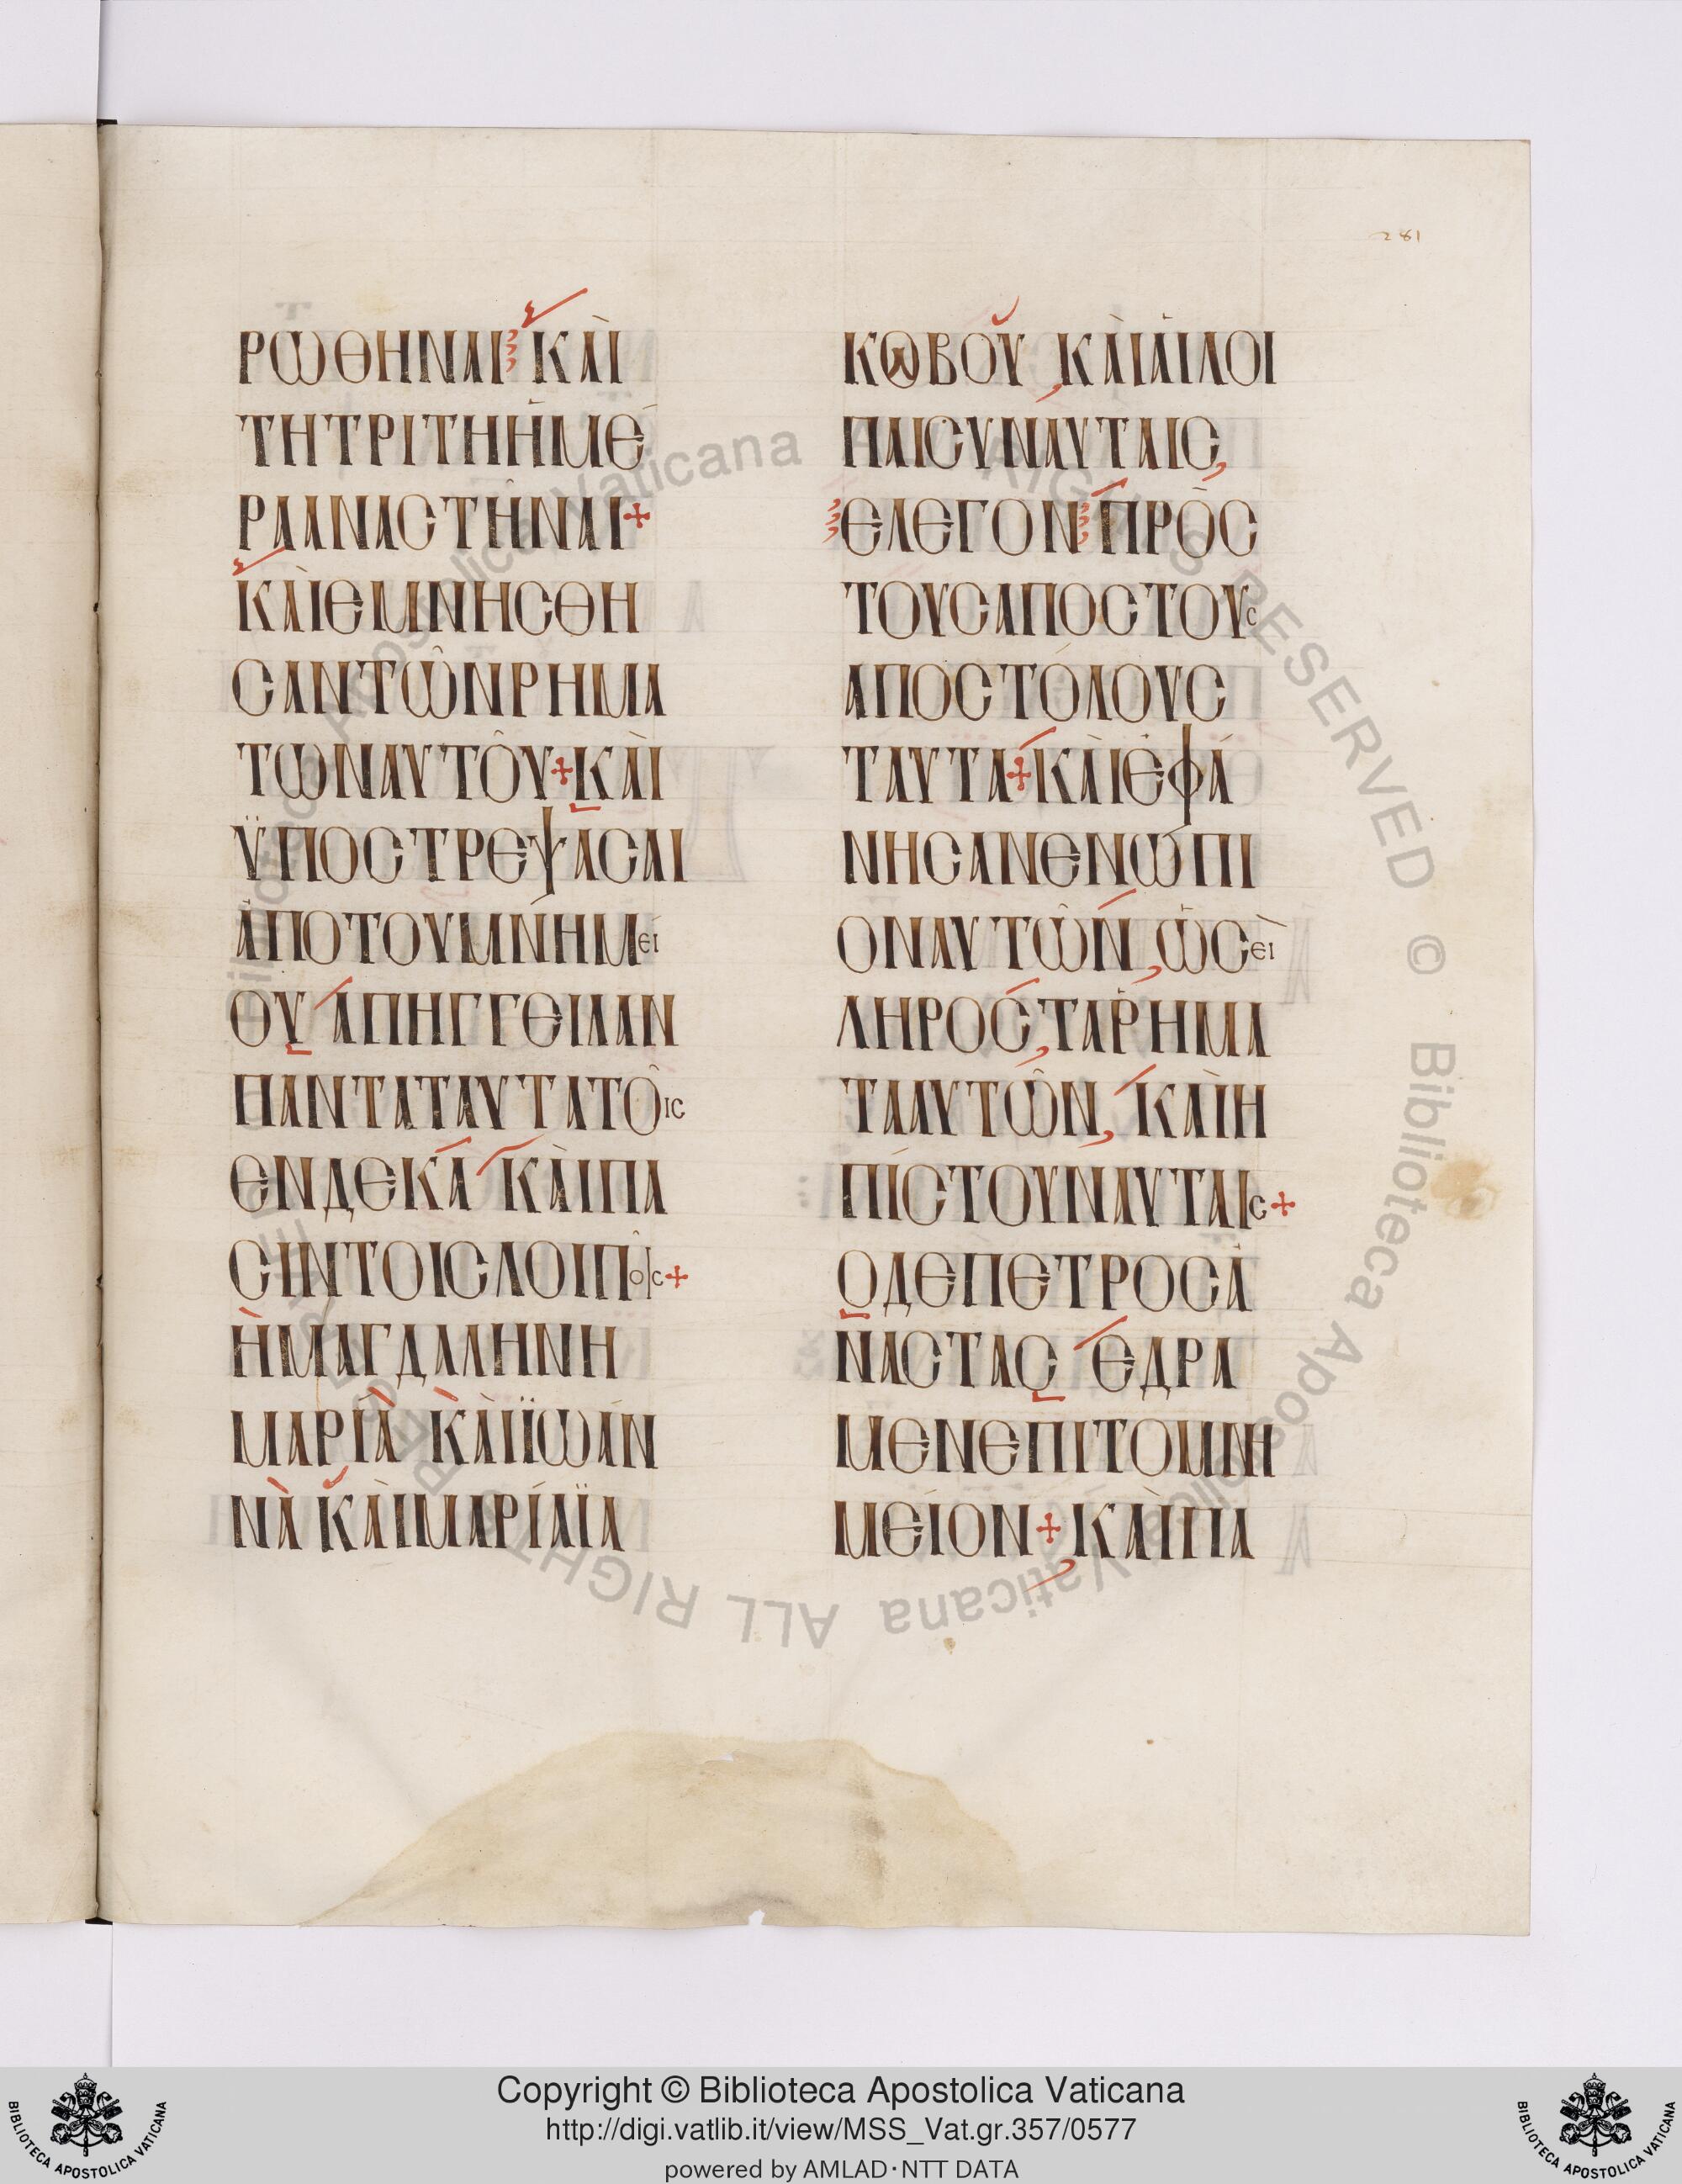 281
ΡΩΘΗΝΑΙ ΚΑῚ
ΤΗΤΡΙΤΗΗΜΕ
ΡΑΑΝΑCΤΗΝΑΙ+
ΚΑῚΕΜΝΗCΘΗ
CΑΝΤΩ͂ΝΡΗΜΑ
ΤΩΝΑΥΤΟΥ͂+ΚΑῚ
ΫΠΟCΤΡΕΨΑCΑΙ
ἈΠΟΤΟΥΜΝΗΜΕΙ
ΟΥ ΑΠΗΓΓΕΙΛΑΝ
ΠΑΝΤΑΤΑΥΤΑΤΟΙC
ΕΝΔΕΚΑ ΚΑῚΠΑ
CΙΝΤΟΙCΛΟΙΠΟΙC+
ΗΜΑΓΔΑΛΗΝΗ
ΜΑΡΙᾺ ΚΑῚΪΩΑΝ
ΝᾺ ΚΑῚΜΑΡΊΑΪΑ
ΚΩΒΟΥ ,ΚΑῚΑΙΛΟΙ
ΠΑΙCΥΝΑΥΤΑΙC,
ΕΛΕΓΟΝ ΠΡῸC
ΤΟΥCΑΠΟCΤΟΥC
ΑΠΟCΤΌΛΟΥC
ΤΑΥΤΑ+ΚΑῚΕΦΆ
ΝΗCΑΝΕΝΩΠΙ
ΟΝΑΥΤΩ͂Ν,ΩCΕῚ
ΛΗΡΟC,ΤΑΡΗΜΑ
ΤΑΑΥΤΩ͂Ν, ΚΑῚΗ
ΠΊCΤΟΥΝΑΥΤΑΙC+
ΟΔΕΠΕΤΡΟCΑ
ΝΑCΤΑC ΕΔΡΑ
ΜΕΝΕΠΙΤΟΜΝΗ
ΜΕΊΟΝ+ΚΑῚΠΑ
Biblioteca Apostolica Vaticana ALL RIGHTS RESERVED © Biblioteca Apostolica Vaticana ALL RIGHTS RESERVED ©
Copyright © Biblioteca Apostolica Vaticana
http://digi.vatlib.it/view/MSS_Vat.gr.357/0577
powered by AMLAD·NTT DATA
BIBLIOTECA APOSTOLICA VATICANA
BIBLIOTECA APOSTOLICA VATICANA